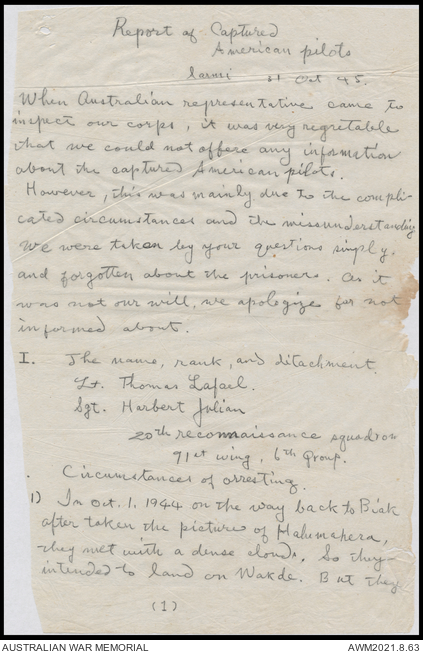 Report of Captured
American pilots
Sarmi 31 Oct 45.
When Australian representative came to
inspect our corps, it was very regretable
that we could not offere any information
about the captured American pilots.
However, this was mainly due to the compli-
cated circumstances and the missunderstanding
We were taken by your questions simply,
and forgotten about the prisoners. As it
was not our will, we apologize for not
informed about.
I. The name, rank, and ditachment.
Lt. Thomas Lafael.
Sgt. Harbert Julian
20th reconnaissance squadron
91st wing, 6th Group.
Circumstances of arresting.
1) In Oct. 1. 1944 on the way back to Biak
after taken the picture of Halumahera,
they met with a dense clouds. So they
intended to land on Wakde. But they
(1)
AUSTRALIAN WAR MEMORIAL
AWM2021.8.63